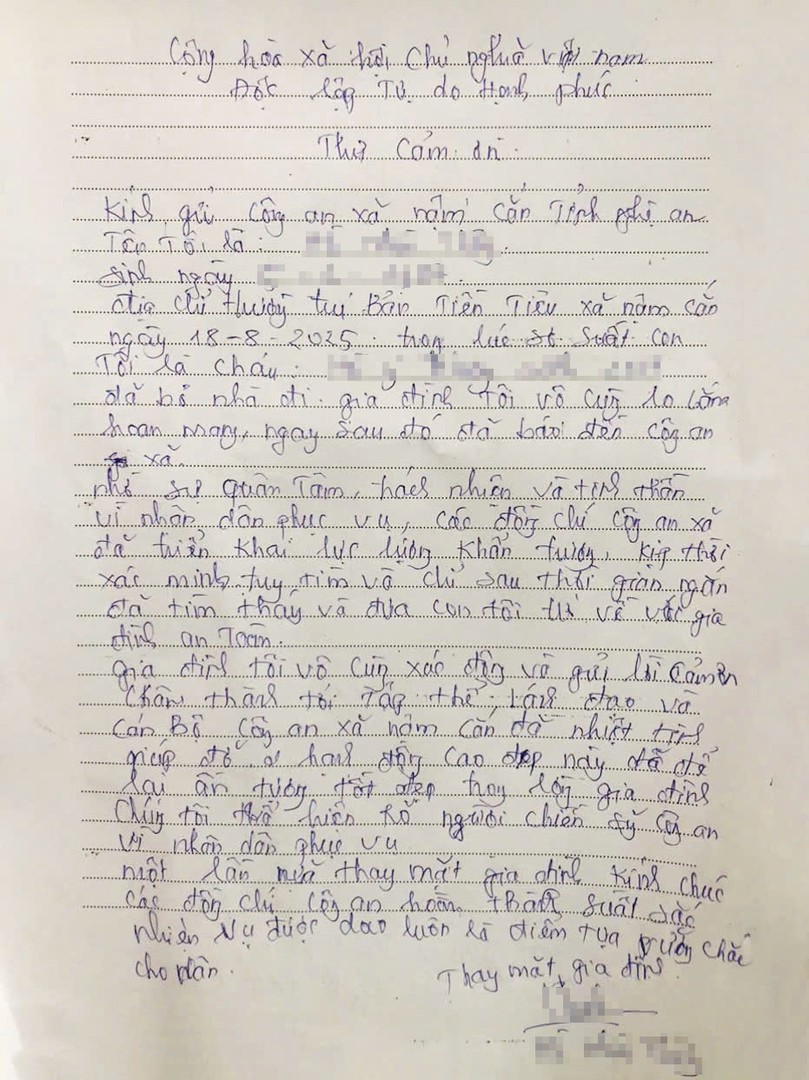 Cộng hòa xã hội Chủ nghĩa việt nam
Độc lập Tự do Hạnh phúc
Thư Cảm ơn
Kính gửi Công an xã nậm cắn Tỉnh nghệ an
Tên Tôi là :
sinh ngày
địa chỉ thường trú Bản Tiền Tiêu xã nậm cắn
ngày 18-8-2025 trong lúc sơ suất con
Tôi là cháu :
đã bỏ nhà đi. gia đình tôi vô cùng lo lắng
hoan mang, ngay sau đó đã báo đến công an
xã.
nhờ sự quan Tâm, trách nhiên và tinh thần
vì nhân dân phục vụ, các đồng chí công an xã
đã triển khai lực lượng khẩn trương, kịp thời
xác minh truy tìm và chỉ sau thời gian ngắn
đã tìm thấy và đưa con tôi trở về với gia
đình an Toàn.
gia đình tôi vô cùng xúc động và gửi lời cảm ơn
chân thành tới Tập thể, lãnh đạo và
cán Bộ công an xã nậm cắn đã nhiệt tình
giúp đỡ hành động cao đẹp này đã để
lại ấn tượng tốt đẹp trong lòng gia đình
chúng tôi thể hiện rõ người chiến sỹ công an
vì nhân dân phục vụ
một lần nữa thay mặt gia đình kính chúc
các đồng chí công an hoàn thành suất sắc
nhiện vụ được dao luôn là điểm tựa vững chắc
cho dân.
Thay mặt gia đình